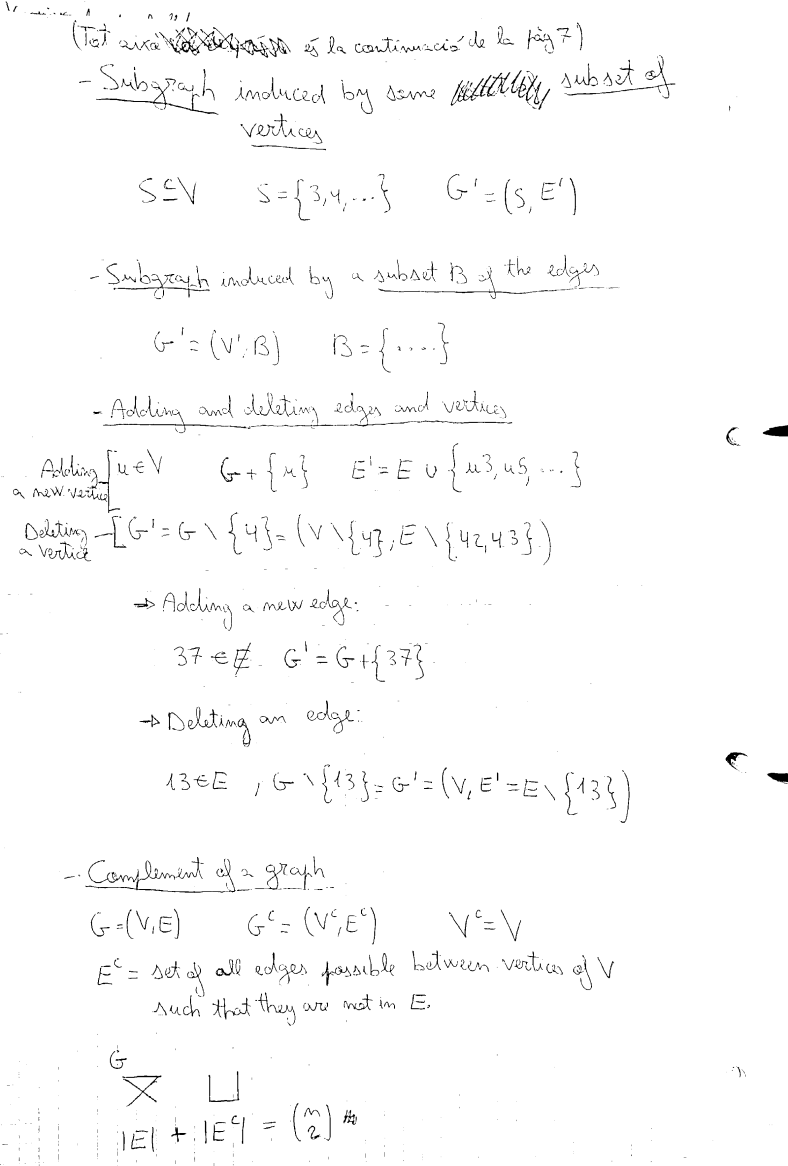 (Tot aixà és la continuació de la pàg 7)
- Subgraph induced by some subset of
vertices
S⊆V S={3,4,...} G'=(S,E')
- Subgraph induced by a subset B of the edges
G'=(V',B) B={....}
- Adding and deleting edges and vertices
Adding a new vertice [u∈V G+{u} E'=E∪{u3,u5,...}
Deleting a vertice [G'=G\{4}=(V\{4},E\{42,43})
→ Adding a new edge:
37∉E. G'=G+{37}
→ Deleting an edge:
13∈E, G\{13}=G'=(V,E'=E\{13})
- Complement of a graph
G=(V,E) Gᶜ=(Vᶜ,Eᶜ) Vᶜ=V
Eᶜ= set of all edges possible between vertices of V
such that they are not in E.
G
|E|+|Eᶜ|=(n 2)